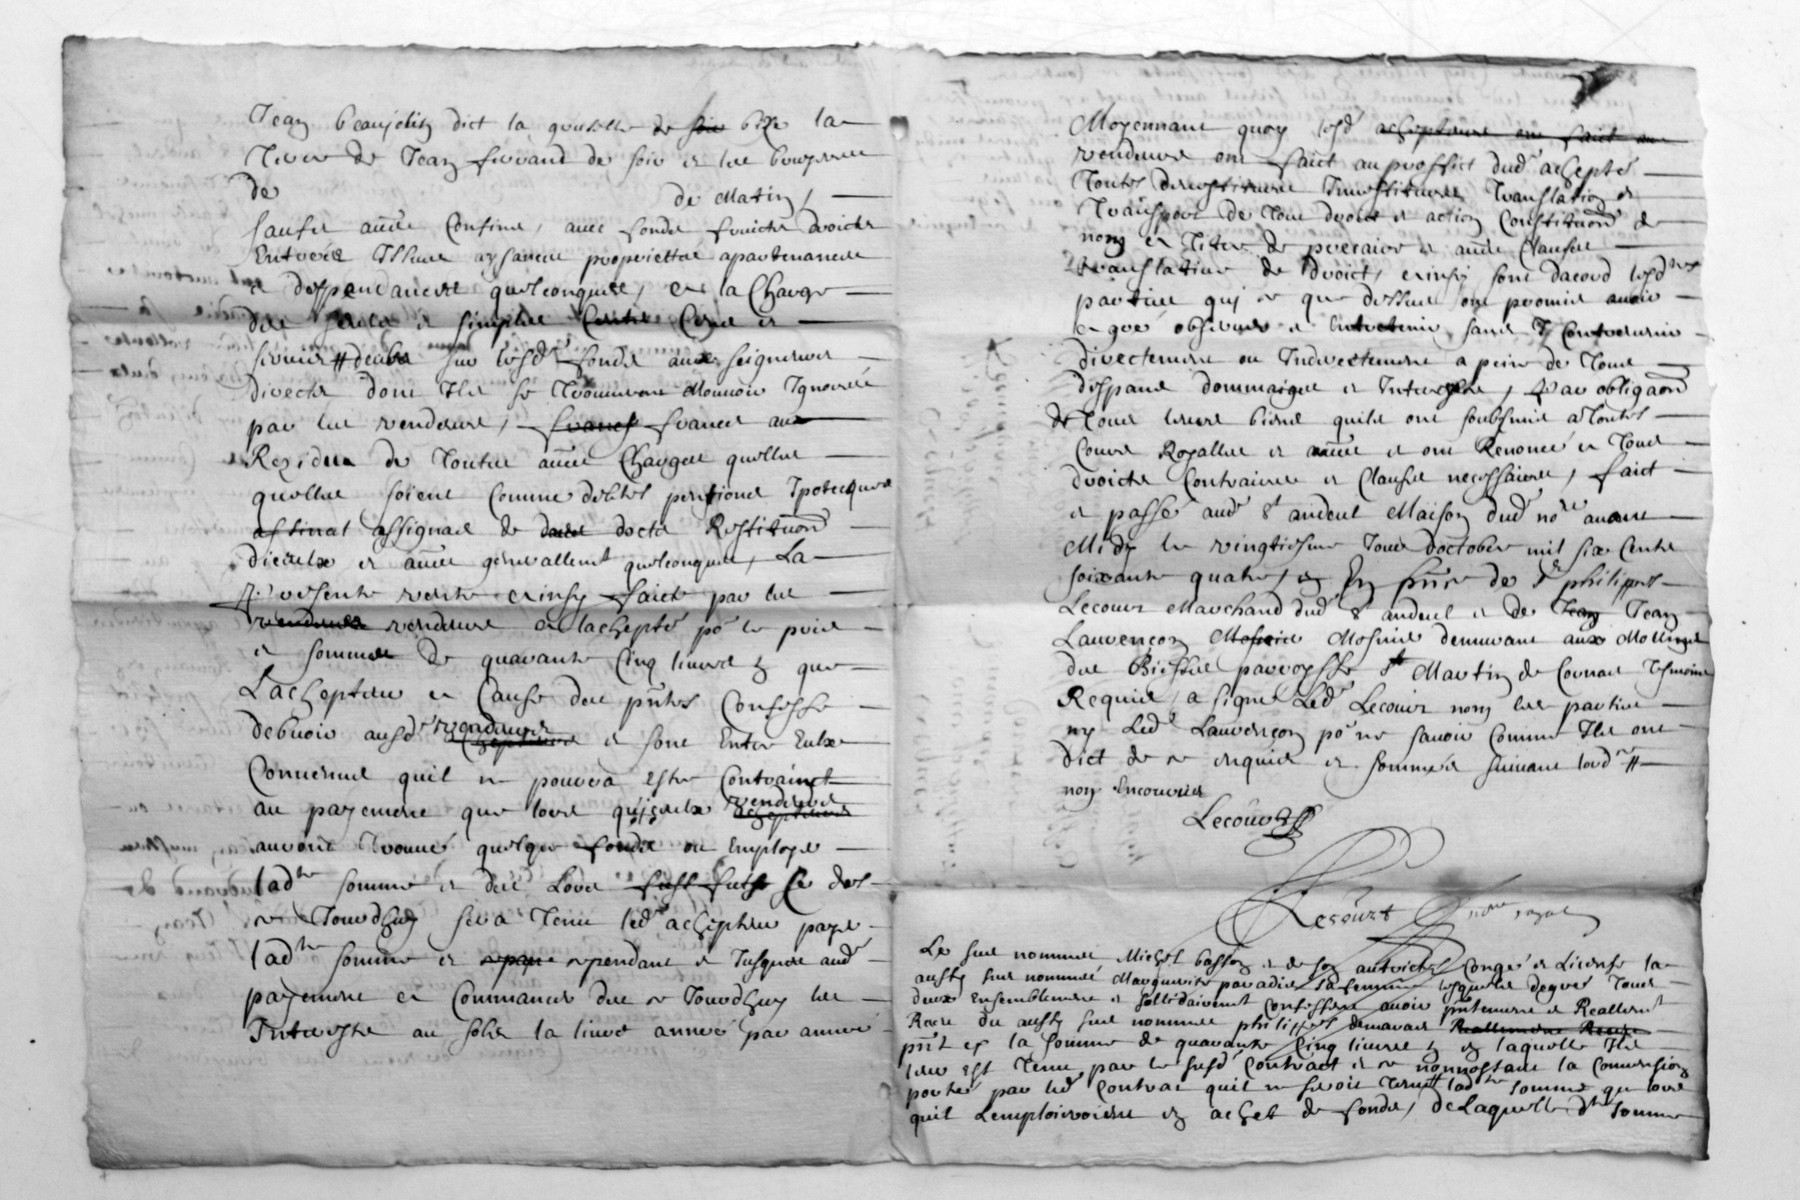 Jean beaujolin dict la goutelle de soir bize la
Terre de Jean furrand de soir et les bruyeres
de de Matin,
saufz autres Confins, avec fonds fruicts droicts
Entrées Issues aysances proprietés apartenances
et deppendances quelconques, et a la Charge
des seules et simples Cents Cens et
servis # deubs sur lesdts fonds aux seigneurs
directs dont Ils se trouveront Mouvoir Ignorés
par les vendeurs, francs francs au
Residu de toutes autres Charges quelles
quelles soient Comme debtes pentions Ipotecques
assinat assignaes de docte Restituon
dicelle et autres generallement quelconques, La
presente vente ainsy faicte par les
vendeurs vendeurs a lachepté po le prix
et somme de quarante Cinq livres que
Lachepteur a Cause des pntes Confesse
debvoir ausdts vendeurs et sont Entre Eulx
Convenus quil ne pourra estre Contrainct
au payement que lors quiceulx vendeurs
auront trouvé quelque fonds ou Employ
ladte somme et des Lors se des
ce Jourdhuy sera tenu ledt achepteur payer
ladte somme et cependant et Jusques audt
payement et Commancer des ce Jourdhuy les
Interestz au solz la livre année par année
Moyennant quoy lesdts achepteurs ont faict au
vendeurs ont faict au proffict dudt achepté
Toutes devestitures Investitures Translation et
transport de tous droicts et action Constituon de
nom et tiltre de precaire et autres Clauses
translative de droict, et ainsy sont dacord lesdtes
parties quj ce que dessus ont promis avoir
a gré observer et Entretenir sans y Contrevenir
directement ou Indirectement a peine de tous
despans dommaiges et Interestz, Par obligaon
de tous leurs biens quils ont soubsmis a toutes
Cours Royalles et autres et ont Renoncé a tous
droicts Contraires et Clauses necessaires, faict
et passé audt St andeul Maison dudt nore avant
Midy le vingtiesme Jour doctobre mil six Cents
soixante quatre, en pnce de Sr philippes
Lecourt Marchand dudt St andeul et de Jean Jean
Laurençon Mosnier Mosnier demeurant aux Mollins
du parroysse St Martin de Cornas tesmoins
Requis, a signé Ledt Lecourt non les parties
ny Ledt Laurençon po ne savoir Comme Ils ont
dict de ce enquis et sommés suivant lordce #
non Encourus
Lecourt
Lecourt nore royal
Les sus nommés Michel basson et de son autorité Congé et Licence la
aussy sus nommée Marguerite paradis sa femme lesquels de grés tous
deux Ensemblement et sollidairement Confessent avoir pntement et Reallement
Receu du aussy sus nommée philippes demarais Reallement Receu
pnt la somme de quarante Cinq livres en laquelle Il
leur est tenu par le susdt Contract et ce nonnostant la Convention
portée par ledt Contrac quil ne seroit tenu # ladte somme que lors
quil Lemploieroient en achet de fonds, de Laquelle dte somme